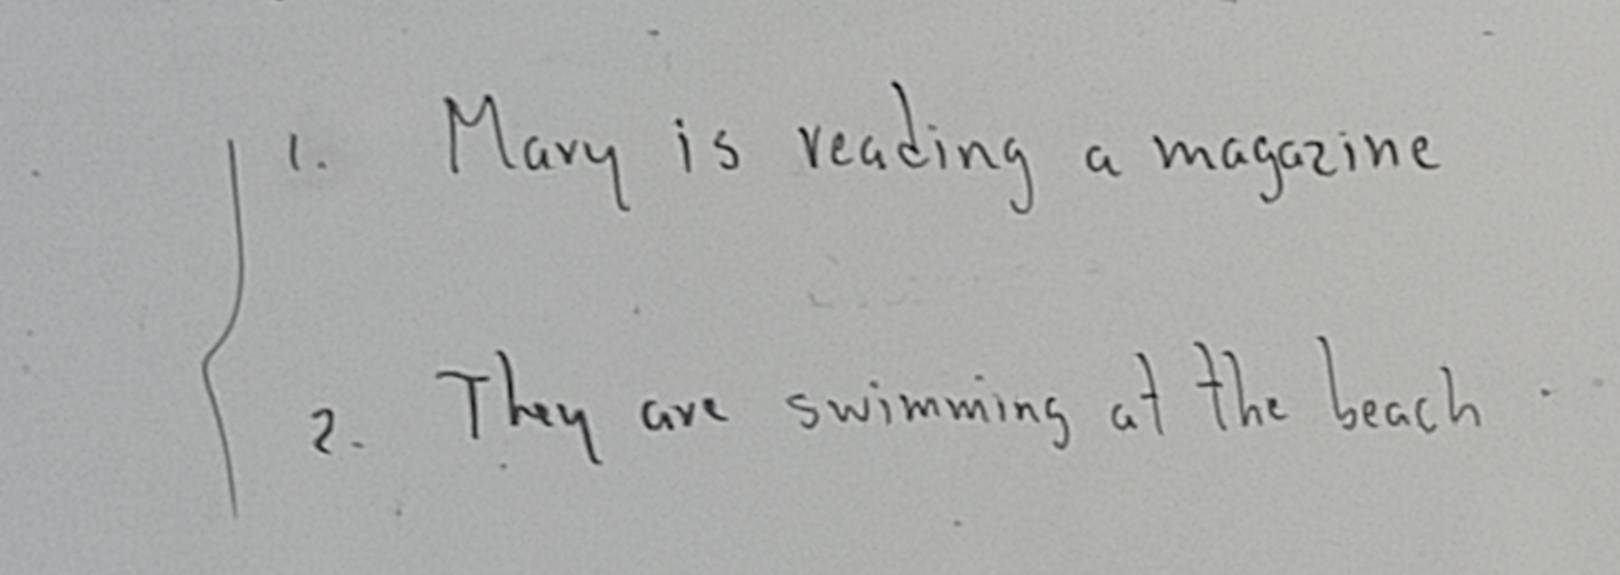 1. Mary is reading a magazine
2. They are swimming at the beach.